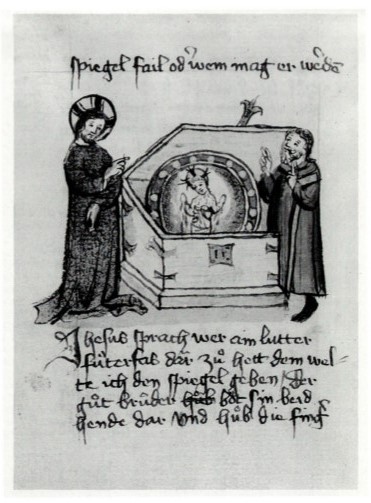 spiegel fail od' wem mag er w'dē
Jhesus sprach wer ain lutter
fůterfas dar zů hett dem wel=
te ich den spiegel geben / Der
gůt brůder hůb bot sin beid
hende dar vnd hůb die fing'